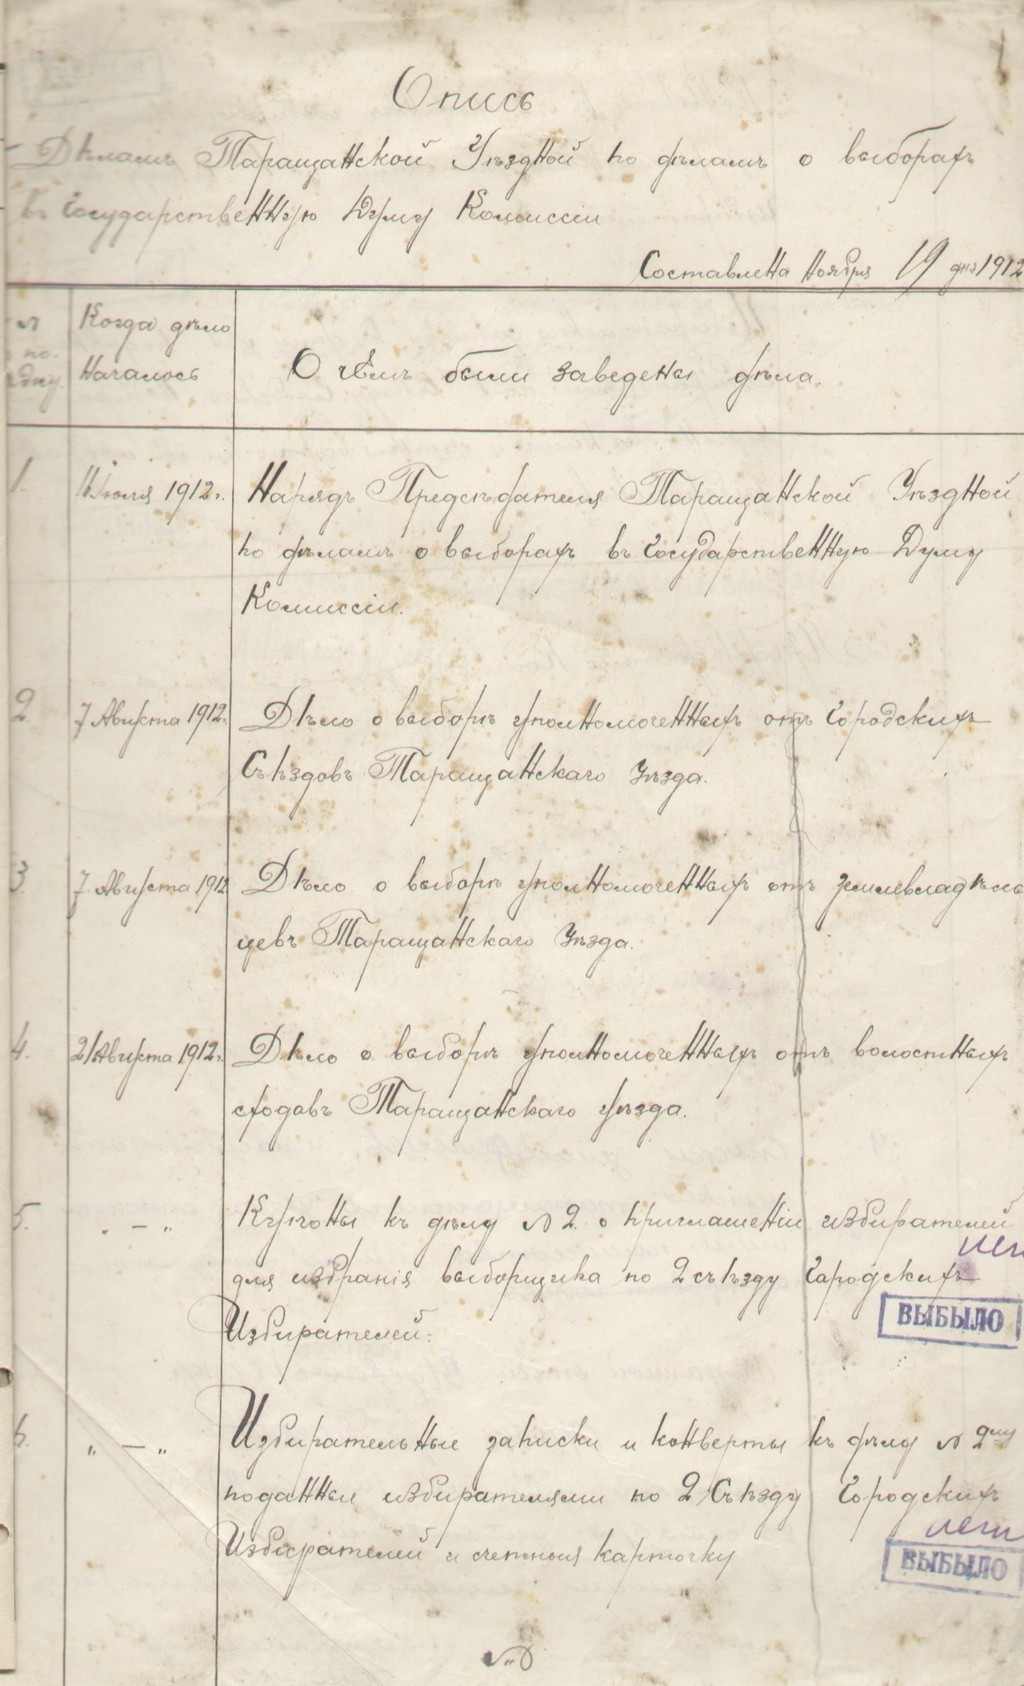 Опись
Дѣламъ Таращанской Уѣздной по дѣламъ о выборахъ
въ Государственную Думу Комиссіи
Составлена Ноября 19 дня 1912
№
по-
рядку
Когда дѣло
началось
О чѣмъ были заведены дѣла.
1.
Июля 1912 г.
Нарядъ Предсѣдателя Таращанской Уѣздной
по дѣламъ о выборахъ въ Государственную Думу
Комиссіи.
2
7 Августа 1912 г.
Дѣло о выборѣ уполномоченныхъ отъ Городскихъ
Съѣздовъ Таращанскаго Уѣзда.
3
7 Августа 1912
Дѣло о выборѣ уполномоченныхъ отъ землевладѣль
цевъ Таращанскаго Уѣзда.
4.
21 Августа 1912 г.
Дѣло о выборѣ уполномоченныхъ отъ волостныхъ
сходовъ Таращанскаго уѣзда.
5.
„ — „
къ дѣлу № 2 о приглашеніи избирателей
нет
для избранія выборщика по 2 съѣзду Городскихъ
Избирателей.
ВЫБЫЛО
6.
„ — „
Избирательные записки и конверты къ дѣлу № 2му
поданныи избирателями по 2 Съѣзду Городскихъ
нет
Избирателей и счетныя карточку
ВЫБЫЛО